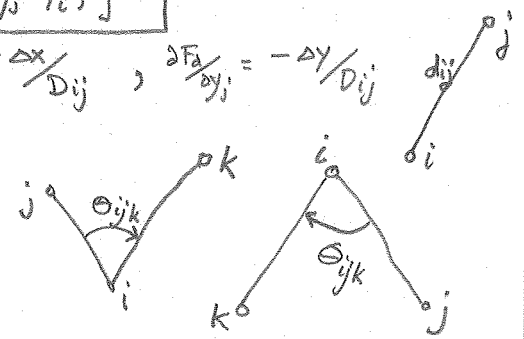 ΔX/Dij , ∂Fd/∂yj = -ΔY/Dij
j
dij
i
j
θijk
k
i
i
θijk
k
j